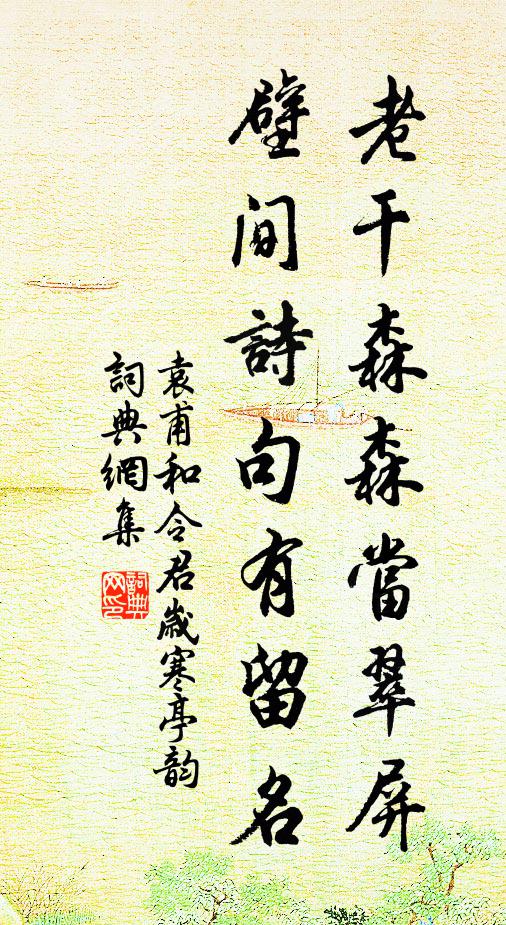 老干森森當翠屏
壁间詩句有留名
袁甫和令君歲寒亭韵
詞典網集
詞典
网印